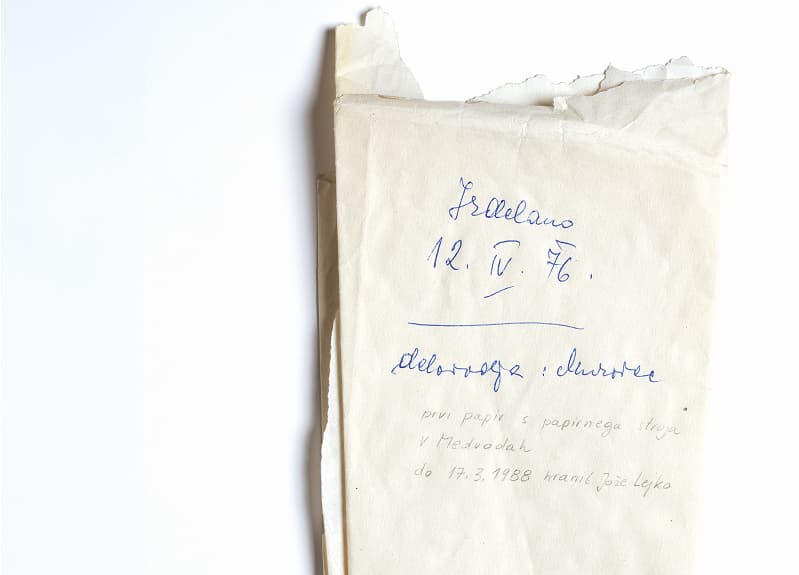 Izdelano
12. IV. 76.
delovodja :
prvi papir s papirnega stroja
v Medvodah
do 17.3.1988 hranil Jože Lejko